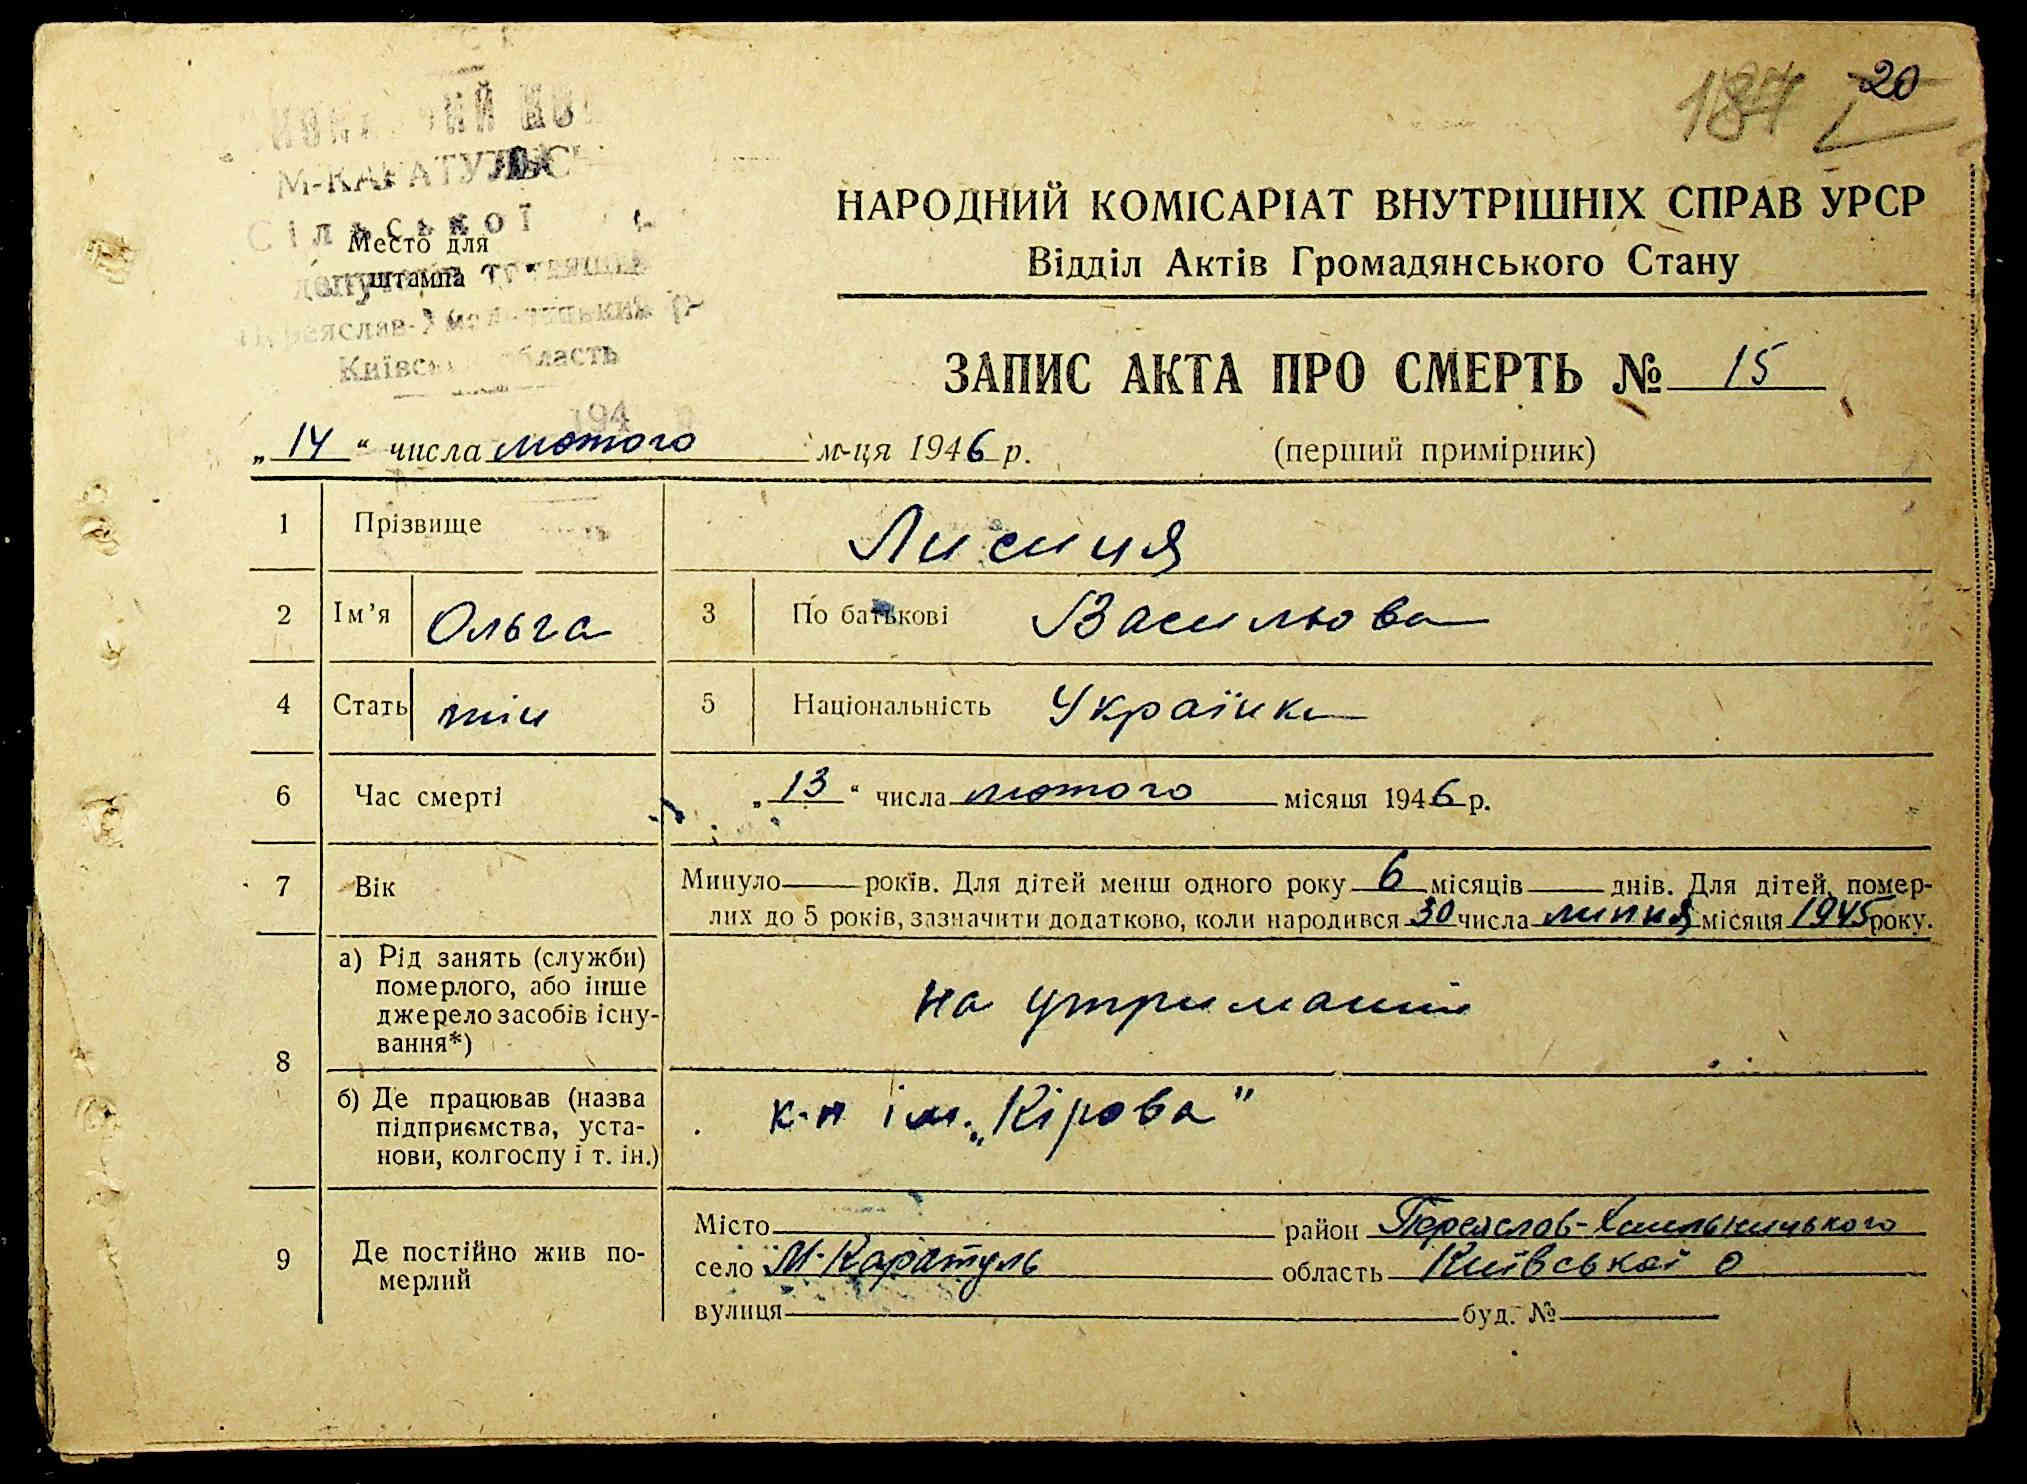 187 20
М-КАРАТУЛЬС
Сільської
Место для
штампа
Переяслав-Хмельницький р
Київськ область
194
НАРОДНИЙ КОМІСАРІАТ ВНУТРІШНІХ СПРАВ УРСР
Відділ Актів Громадянського Стану
ЗАПИС АКТА ПРО СМЕРТЬ № 15
„14“ числа лютого м-ця 1946 р. (перший примірник)
1 Прізвище Лисиця
2 Ім’я Ольга 3 По батькові Васильова
4 Стать жін 5 Національність Українка
6 Час смерті „13“ числа лютого місяця 1946 р.
7 Вік Минуло — років. Для дітей менш одного року 6 місяців — днів. Для дітей, помер-
лих до 5 років, зазначити додатково, коли народився 30 числа липня місяця 1945 року.
8 а) Рід занять (служби)
померлого, або інше
джерело засобів існу-
вання*)
на утриманні
б) Де працював (назва
підприємства, уста-
нови, колгоспу і т. ін.)
к-п ім. „Кірова”
9 Де постійно жив по-
мерлий
Місто район Переяслав-Хмельницького
село М-Каратуль область Київської о
вулиця буд. №